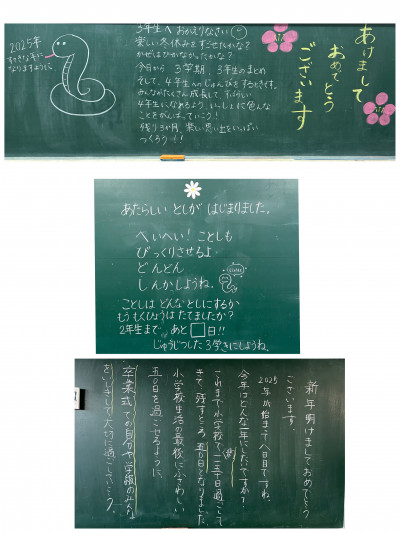 2025年
すてきな年に
なりますように
3年生へ おかえりなさい
楽しい冬休みをすごせたかな?
かぜはひかなかったかな?
今日から3学期、3年生のまとめ
そして、4年生へのじゅんびをするときです。
みんながたくさん成長して、すばらしい
4年生になれるよう、いっしょに色んな
ことをがんばっていこう!
残り3か月、楽しい思い出をいっぱい
つくろう!!
あけまして
おめでとう
ございます
あたらしい としが はじまりました。
へいへい! ことしも
びっくりさせるよ
どんどん
しんかしようね。
ことしは どんな としにするか
もう もくひょうは たてましたか?
2年生まで、あと□日!!
じゅうじつした3学きにしようね。
新年明けましておめでとう
ございます。
2025年が始まって八日目ですね。
今年はどんな一年にしたいですか?
これまで小学校で(約)日過ごして
きて、残すところ、五〇日となりました。
小学校生活の最後にふさわしい
五〇日を過ごせるように、
卒業式での自分や学級のみんな
をいしきして大切に過ごしていこう。